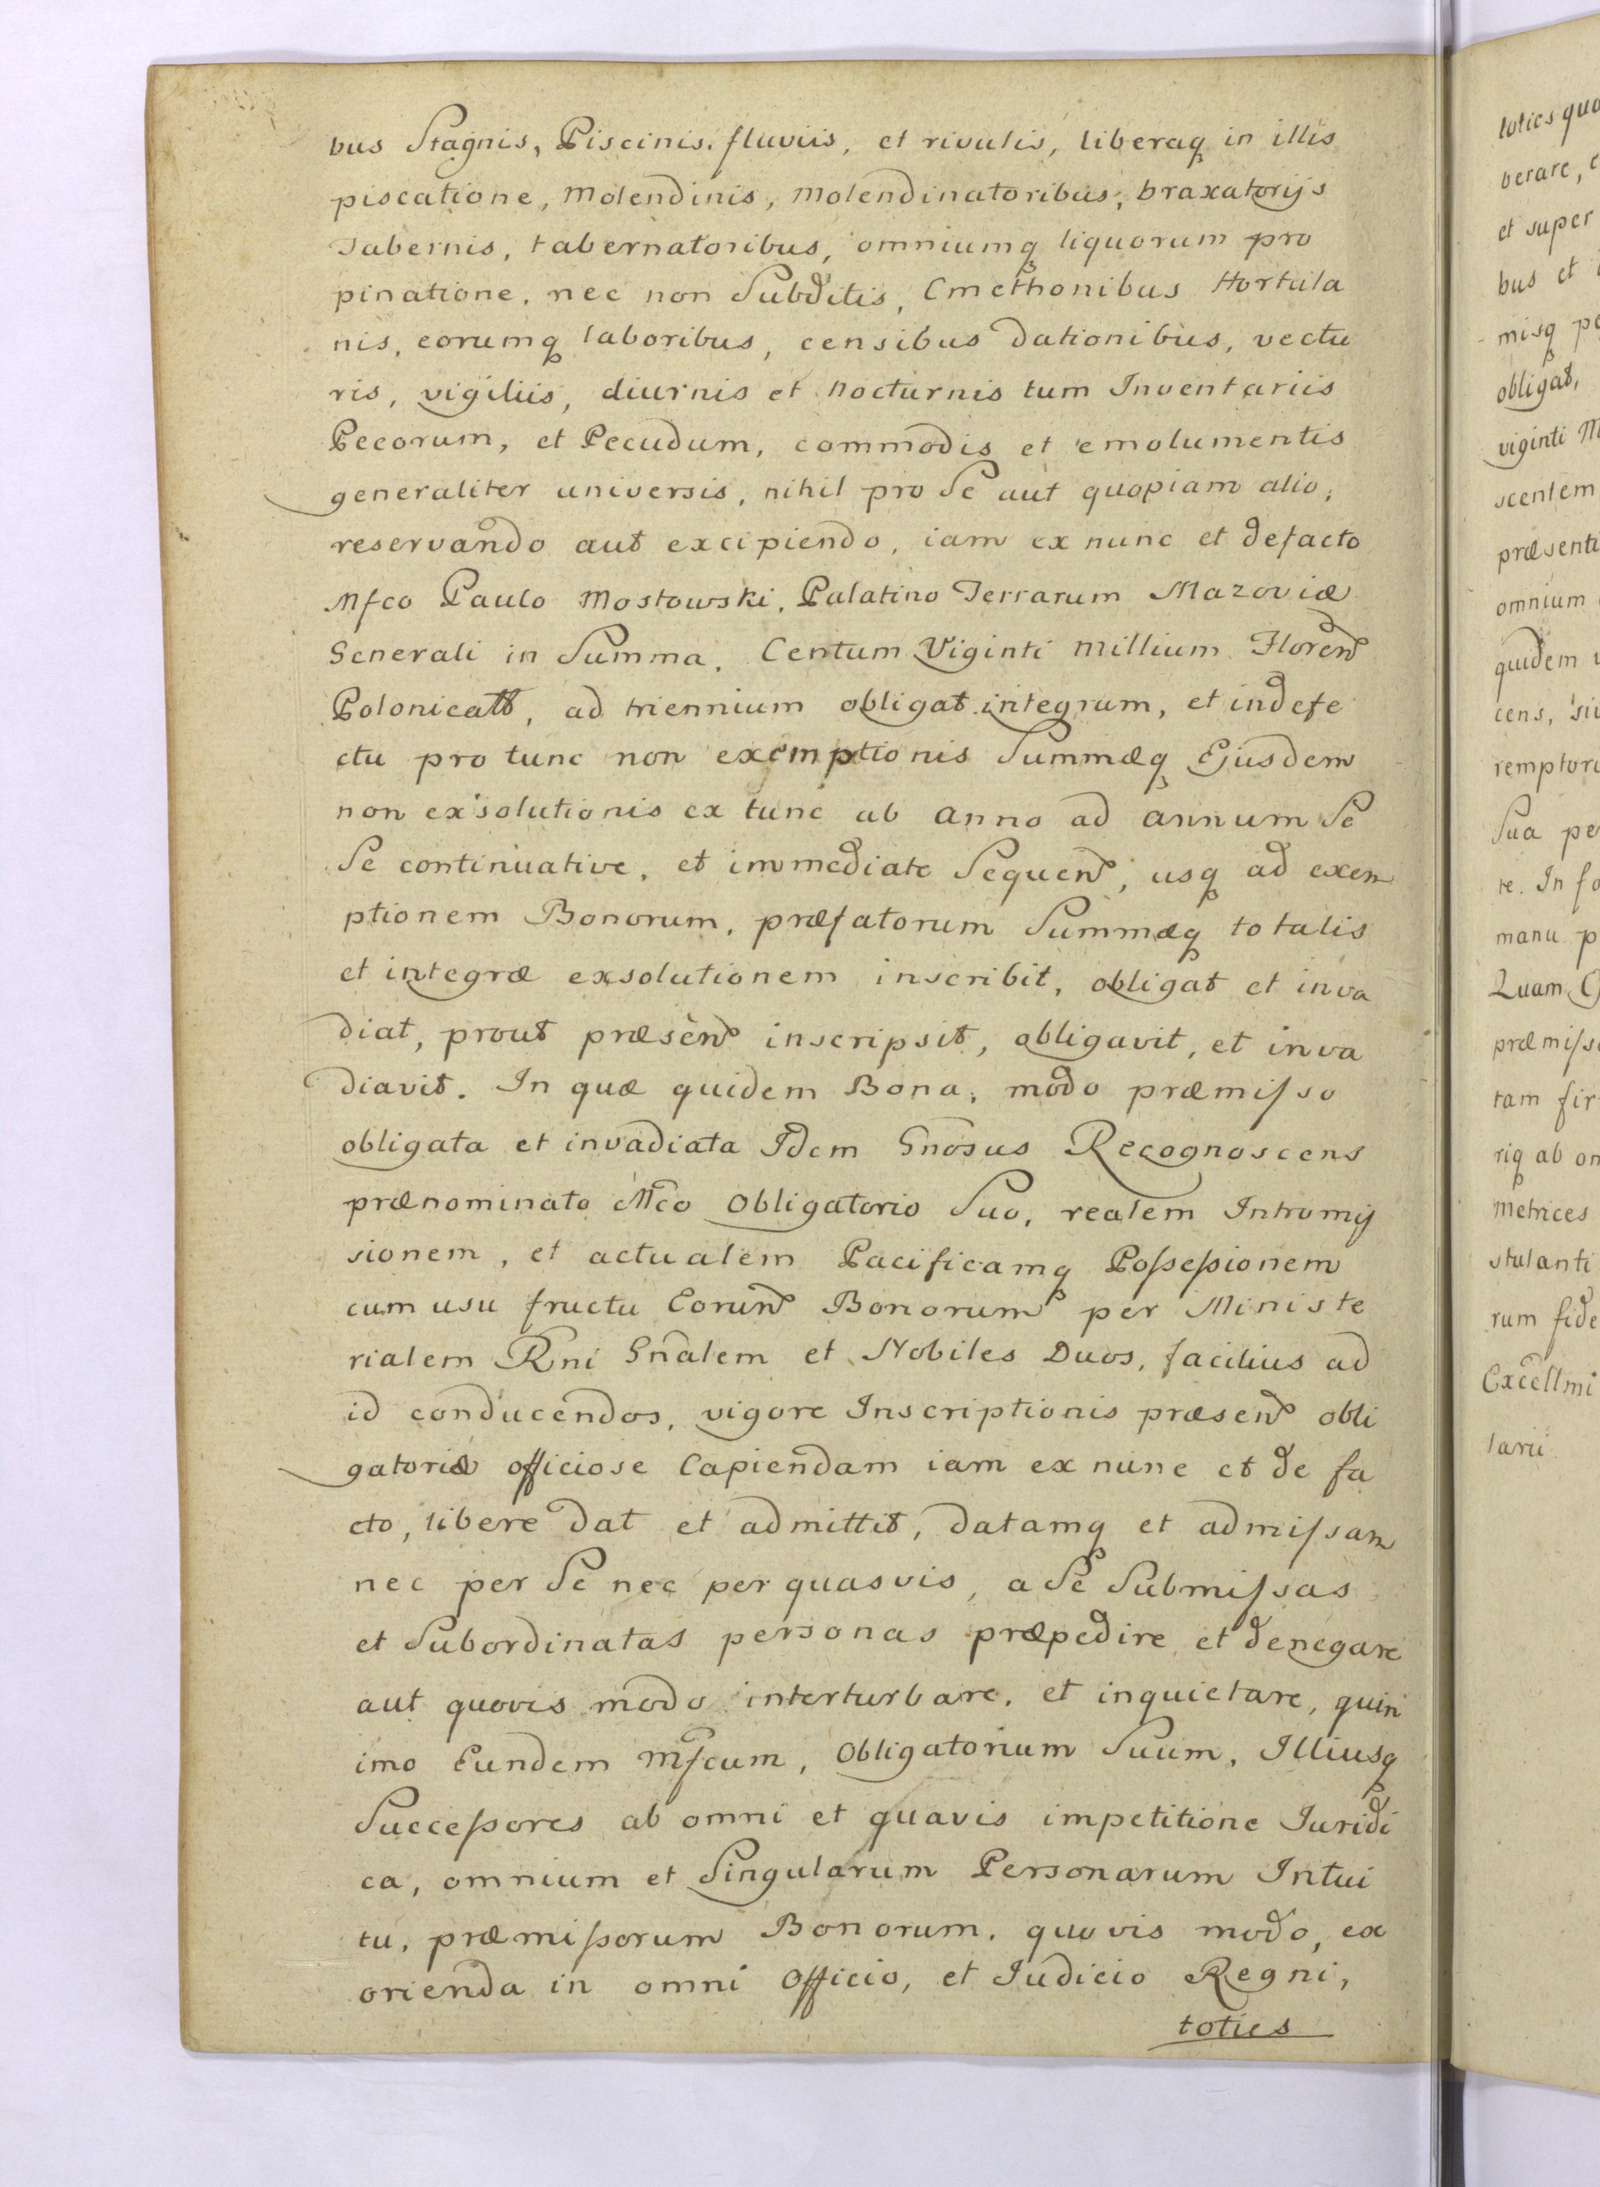 bus Stagnis, Piscinis, fluviis, et rivulis, liberaq in illis
piscatione, Molendinis, Molendinatoribus, braxatorijs
Tabernis, tabernatoribus, omniumq liquorum pro
pinatione, nec non Subditis, Cmethonibus Hortula
nis, eorumq laboribus, censibus dationibus, vectu
ris, vigiliis, diurnis et nocturnis tum Inventariis
Pecorum, et Pecudum, commodis et emolumentis
generaliter universis, nihil pro Se aut quopiam alio,
reservando aut excipiendo, iam ex nunc et defacto
Mfco Paulo Mostowski, Palatino Terrarum Mazoviæ
Generali in Summa, Centum Viginti Millium Floren
Polonicall, ad triennium obligat integrum, et indefe
ctu pro tunc non exemptionis Summæq Ejusdem
non exsolutionis ex tunc ab anno ad annum Se
Se continuative, et immediate Sequen, usq ad exem
ptionem Bonorum, præfatorum Summæq totalis
et integræ exsolutionem inscribit, obligat et inva
diat, prout præsen inscripsit, obligavit, et inva
diavit. In quæ quidem Bona, modo præmisso
obligata et invadiata Idem Gnosus Recognoscens
prænominato Mco Obligatorio Suo, realem Intromis
sionem, et actualem Pacificamq Possessionem
cum usu fructu Eorun Bonorum per Ministe
rialem Rni Gnalem et Nobiles Duos, facilius ad
id conducendos, vigore Inscriptionis præsen obli
gatoriæ officiose Capiendam iam ex nunc et de fa
cto, libere dat et admittit, datamq et admissam
nec per Se nec per quasvis, a Se Submissas
et Subordinatas personas præpedire et denegare
aut quovis modo interturbare, et inquietare, quin
imo Eundem Mfcum, Obligatorium Suum, Illiusq
Successores ab omni et quavis impetitione Juridi
ca, omnium et Singularum Personarum Intui
tu, præmissorum Bonorum, quovis modo, ex
orienda in omni Officio, et Judicio Regni,
toties
toties quo
berare, e
et super
bus et
misq pe
obligat,
viginti M
scentem
præsenti
omnium
quidem
cens, si
remptori
Sua pe
re. In fo
manu p
Quam
præmiss
tam fir
riq ab on
metrices
stulanti
rum fide
Excellmi
larii